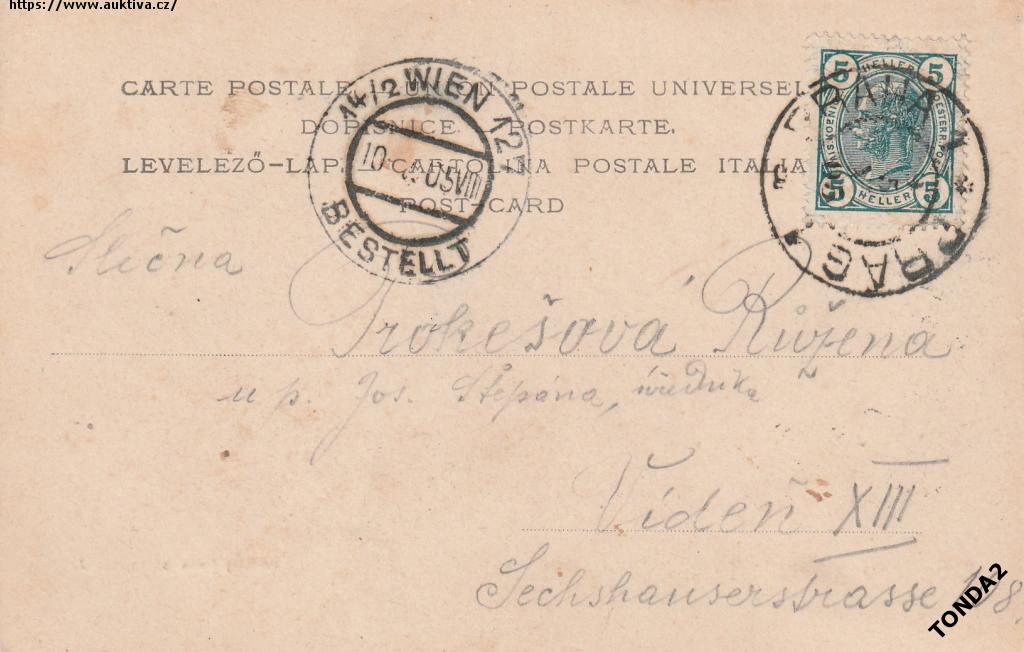 https://www.auktiva.cz/
CARTE POSTALE POSTALE UNIVERSEL
DOPISNICE. POSTKARTE.
LEVELEZŐ-LAP. CARTOLINA POSTALE ITALIA
POST-CARD
14/2 WIEN 12
10 05 VIII
BESTELLT
5 HELLER 5
5 HELLER 5
PRAHA
PRAG
Slečna
Prokešová Růžena
u p. Jos. Štěpána, úředníka
Vídeň XIII
Sechshauserstrasse
TONDA2